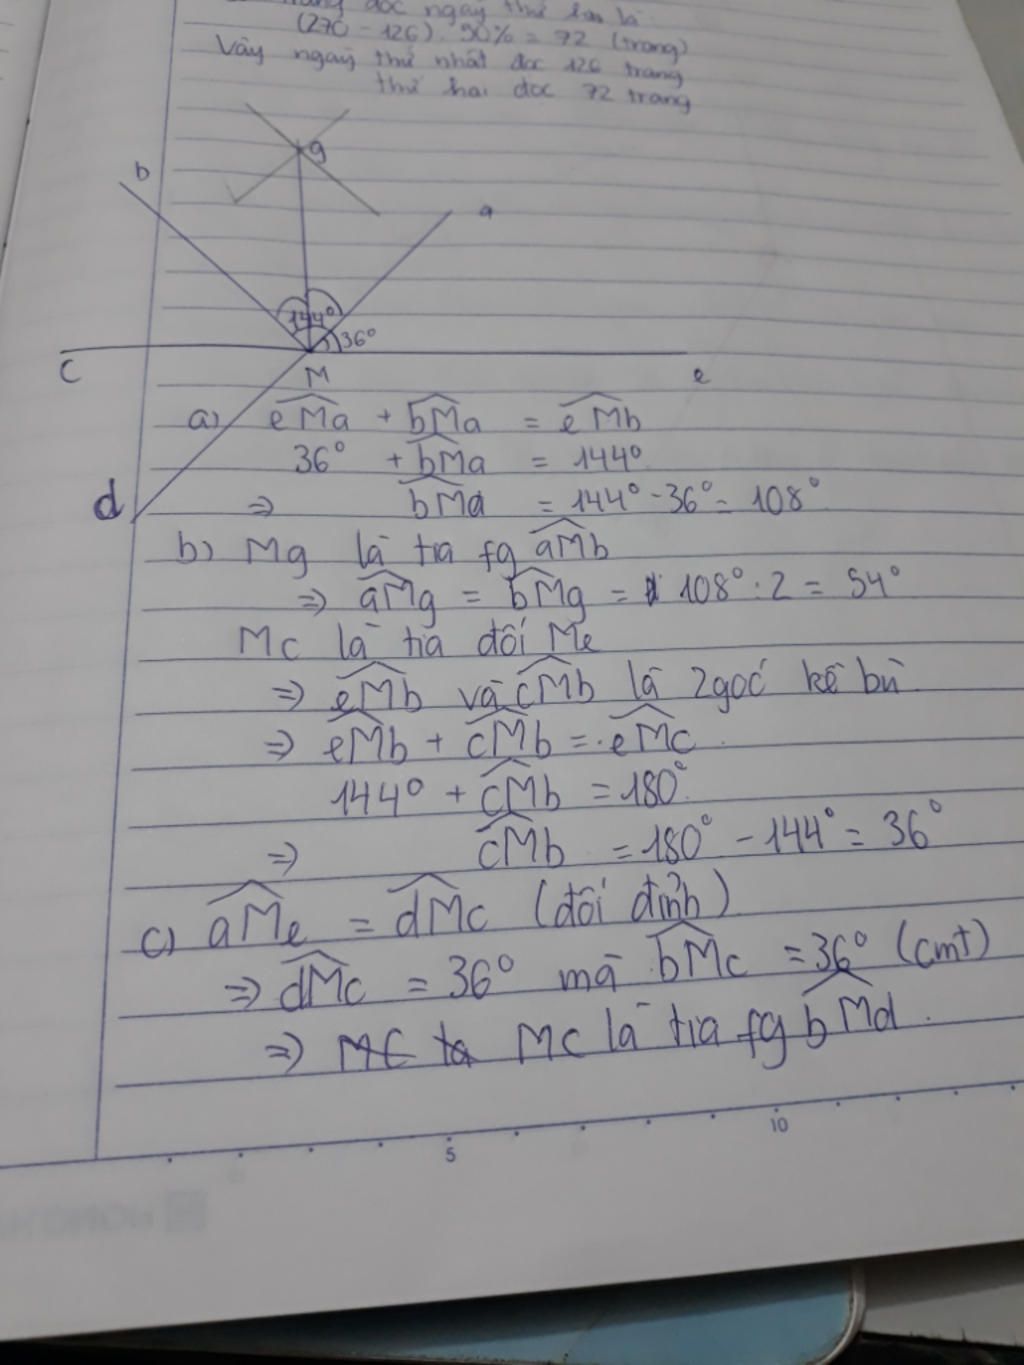 đọc ngày thứ là
(270 - 126). 50% = 72 (trang)
Vậy ngày thứ nhất đọc 126 trang
thứ hai đọc 72 trang
g
b
a
144°
36°
c
M
e
a) eMa + bMa = eMb
36° + bMa = 144°
d
⇒ bMa = 144° - 36° = 108°
b) Mg là tia fg aMb
⇒ aMg = bMg = 108° : 2 = 54°
Mc là tia đối Me
⇒ eMb và cMb là 2 góc kề bù
⇒ eMb + cMb = eMc
144° + cMb = 180°
⇒ cMb = 180° - 144° = 36°
c) aMe = dMc (đối đỉnh)
⇒ dMc = 36° mà bMc = 36° (cmt)
⇒ Mc là tia fg bMd.
5
10